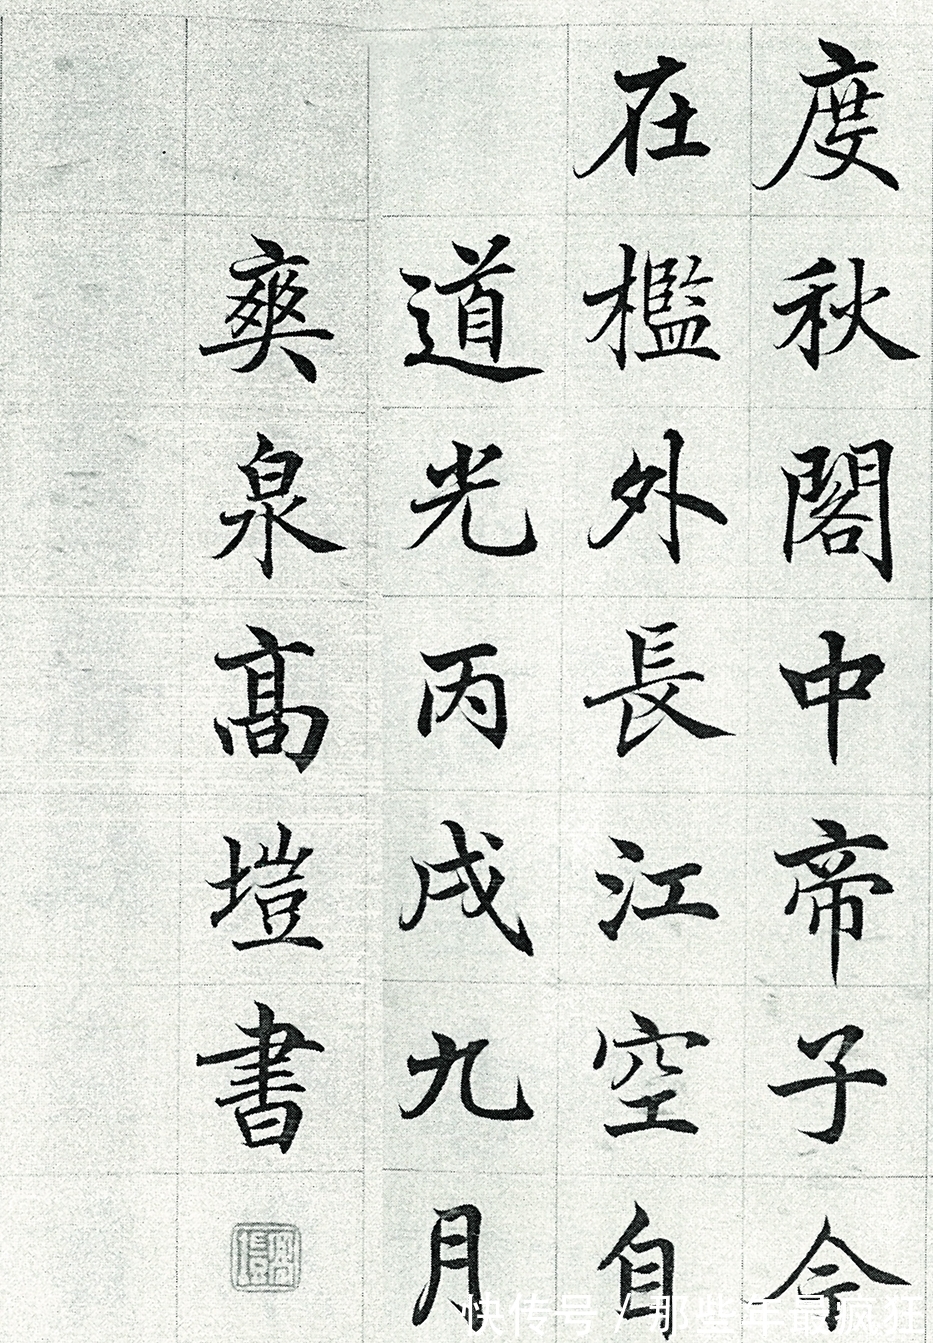 度秋閣中帝子今
在檻外長江空自
道光丙戌九月
爽泉高塏書
快传号 / 那些年最疯狂